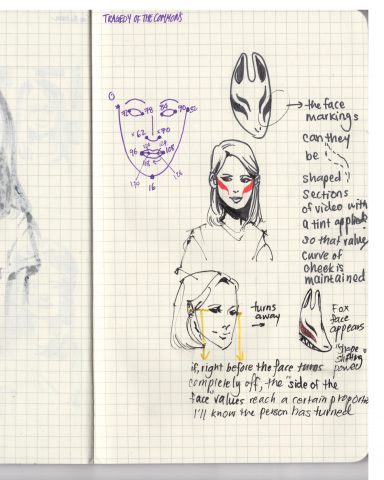 TRAGEDY OF THE COMMONS
0
78
90
× 62
× 70
96
108
118
16
→ the face
markings
can they
be
shaped
sections
of video with
a tint applied
so that value
curve of
cheek is
maintained
turns
away
→
Fox
face
appears
shape-
shifting
power
if, right before the face turns
completely off, the "side of the
face" values reach a certain proportion
I'll know the person has turned